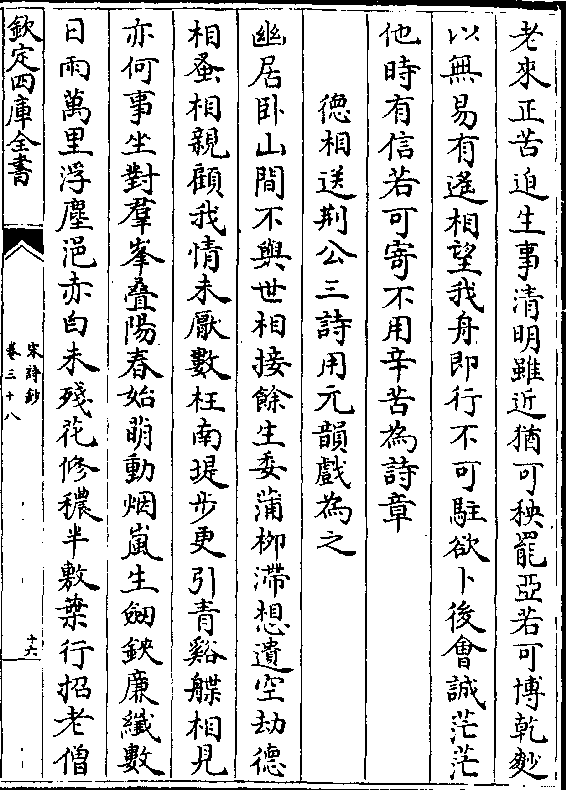 老來正苦迫生事清明雖近猶可秧罷亞若可博乾麨
以無易有遙相望我舟即行不可駐欲卜後會誠茫茫
他時有信若可寄不用辛苦為詩章
德相送荆公三詩用元韻戲為之
幽居卧山間不與世相接餘生委蒲栁滯想遺空劫德
相蚤相親顧我情未厭數枉南堤步更引青谿艓相見
亦何事坐對羣峯叠陽春始萌動烟嵐生劒鋏廉纖數
日雨萬里浮塵浥赤白未殘花修穠半敷葉行招老僧
欽定四庫全書
宋詩鈔
卷三十八
十六